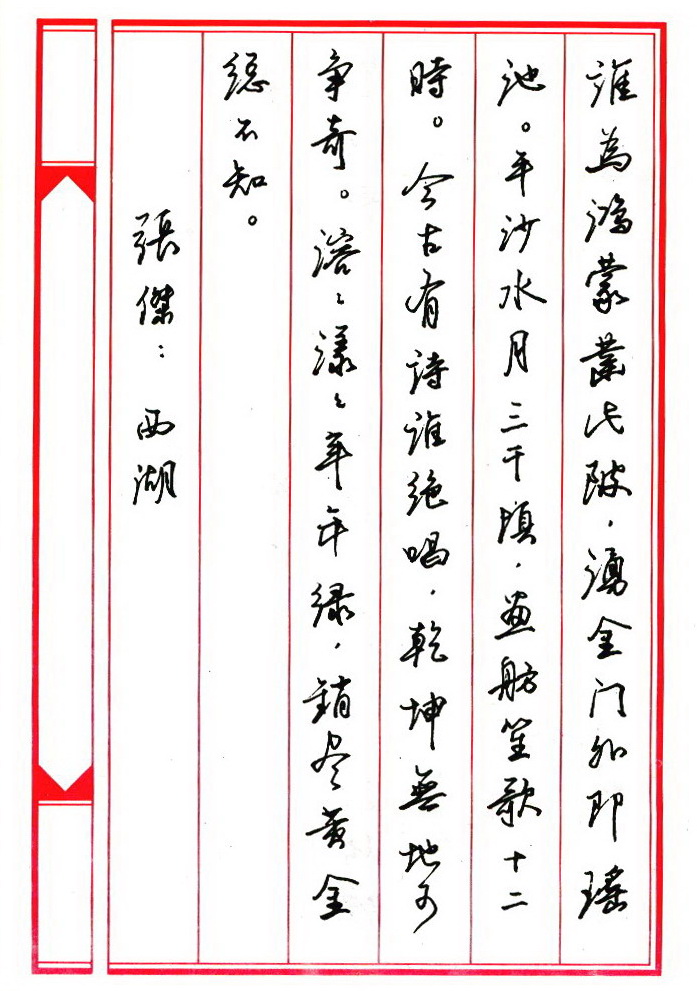 誰為鴻蒙凿此陂，湧金门外即瑤
池。平沙水月三千頃，畫舫笙歌十二
時。今古有詩誰絕唱，乾坤無地可
争奇。溶々漾々年年綠，銷尽黄金
總不知。
張傑：西湖